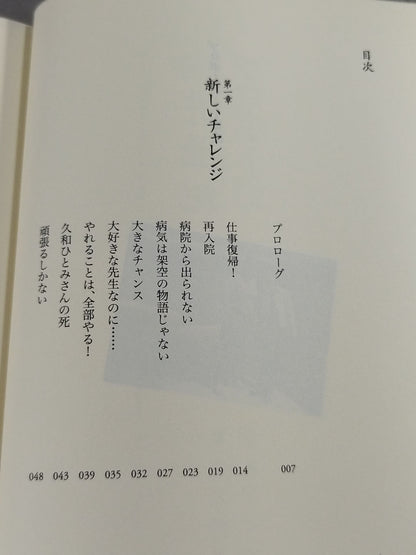 目次
プロローグ 007
第一章
新しいチャレンジ
仕事復帰！ 014
再入院 019
病院から出られない 023
病気は架空の物語じゃない 027
大きなチャンス 032
大好きな先生なのに…… 035
やれることは、全部やる！ 039
久和ひとみさんの死 043
頑張るしかない 048